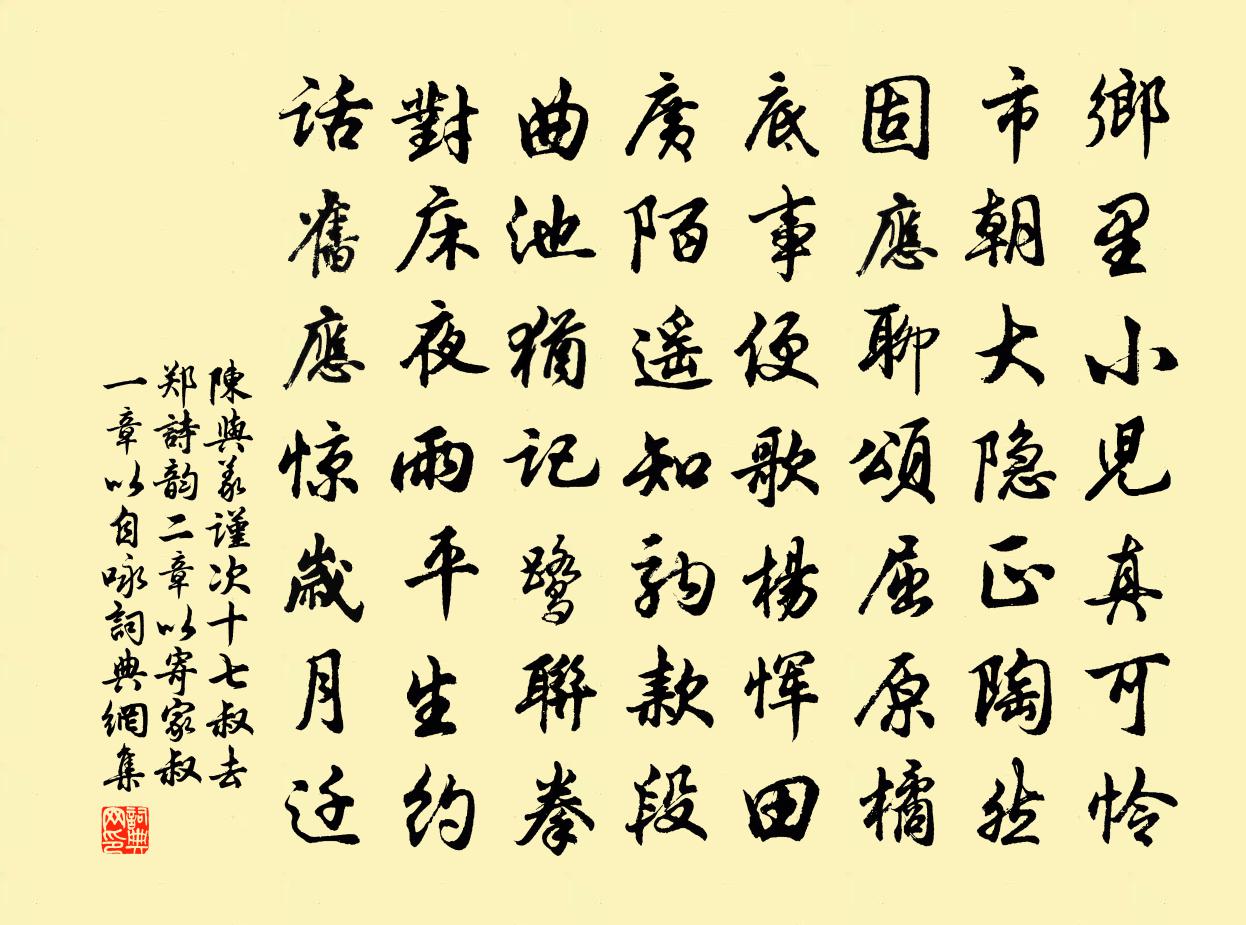 鄉里小児真可怜
市朝大隐正陶然
固應聊頌屈原橘
底事便歌楊惲田
廣陌遥知駒款段
曲池猶記鹭聯拳
對床夜雨平生約
话舊應惊歲月迁
陳與義謹次十七叔去
郑詩韵二章以寄家叔
一章以自咏詞典網集
詞典网印